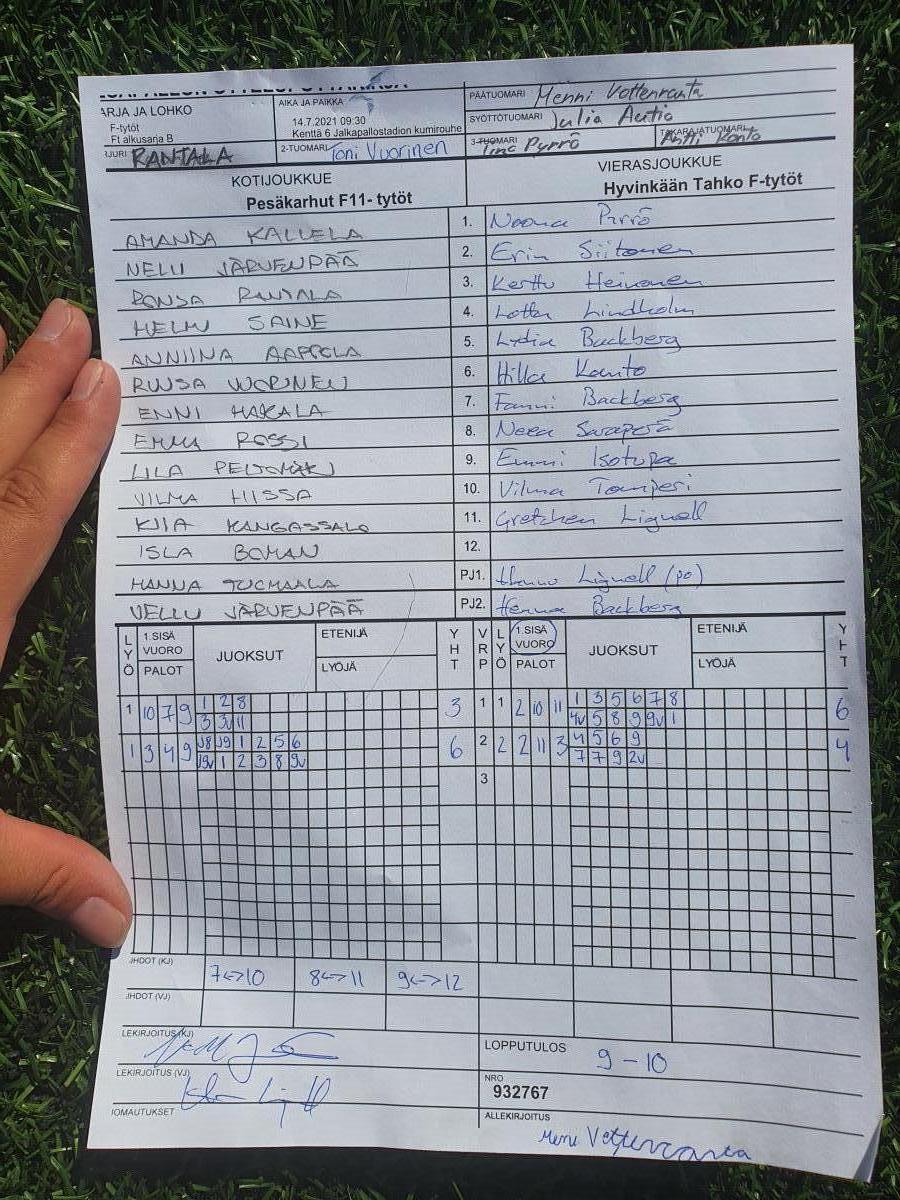 ARJA JA LOHKO
F-tytöt
Ft alkusarja B
AIKA JA PAIKKA
14.7.2021 09:30
Kenttä 6 Jalkapallostadion kumirouhe
PÄÄTUOMARI Menni Vottenranta
SYÖTTÖTUOMARI Julia Autio
RANTALA
2-TUOMARI Toni Vuorinen
3-TUOMARI Tino Pyrrö
TAKARAJATUOMARI Antti Kanto
KOTIJOUKKUE
Pesäkarhut F11- tytöt
VIERASJOUKKUE
Hyvinkään Tahko F-tytöt
AMANDA KALLELA 1. Noona Pirrö
NELLI JÄRVENPÄÄ 2. Erin Siitonen
RONJA RANTALA 3. Kerttu Heinonen
HELMI SAINE 4. Lotta Lindholm
ANNIINA AAPPOLA 5. Lydia Backberg
RUUSA VUORINEN 6. Hilla Kanto
ENNI HAKALA 7. Fanni Backberg
EMMA ROSSI 8. Neea
LILA PELTOMÄKI 9. Emmi Isotupa
VILMA HIISSA 10. Vilma Tamperi
KIIA KANGASSALO 11. Gretchen Lignell
ISLA BOMAN 12.
HANNA TUOMAALA PJ1. Hannu Lignell (po)
VELLU JÄRVENPÄÄ PJ2. Henna Backberg
LYÖ 1.SISÄVUORO PALOT JUOKSUT ETENIJÄ LYÖJÄ YHT VRP LYÖ 1.SISÄ VUORO PALOT JUOKSUT ETENIJÄ LYÖJÄ YHT
1 10 7 9 1 2 8 3 1 1 2 10 11 1 3 5 6 7 8 6
3 3v 11 4v 5 8 9 9v 1
1 3 4 9 J8 J9 1 2 5 6 6 2 2 2 11 3 4 5 6 9 4
J9v 1 2 3 8 9v 7 7 9 2v
3
IHDOT (KJ) 7<->10 8<->11 9<->12
IHDOT (VJ)
LEKIRJOITUS (KJ)
LOPPUTULOS 9 - 10
LEKIRJOITUS (VJ)
NRO
932767
IOMAUTUKSET
ALLEKIRJOITUS